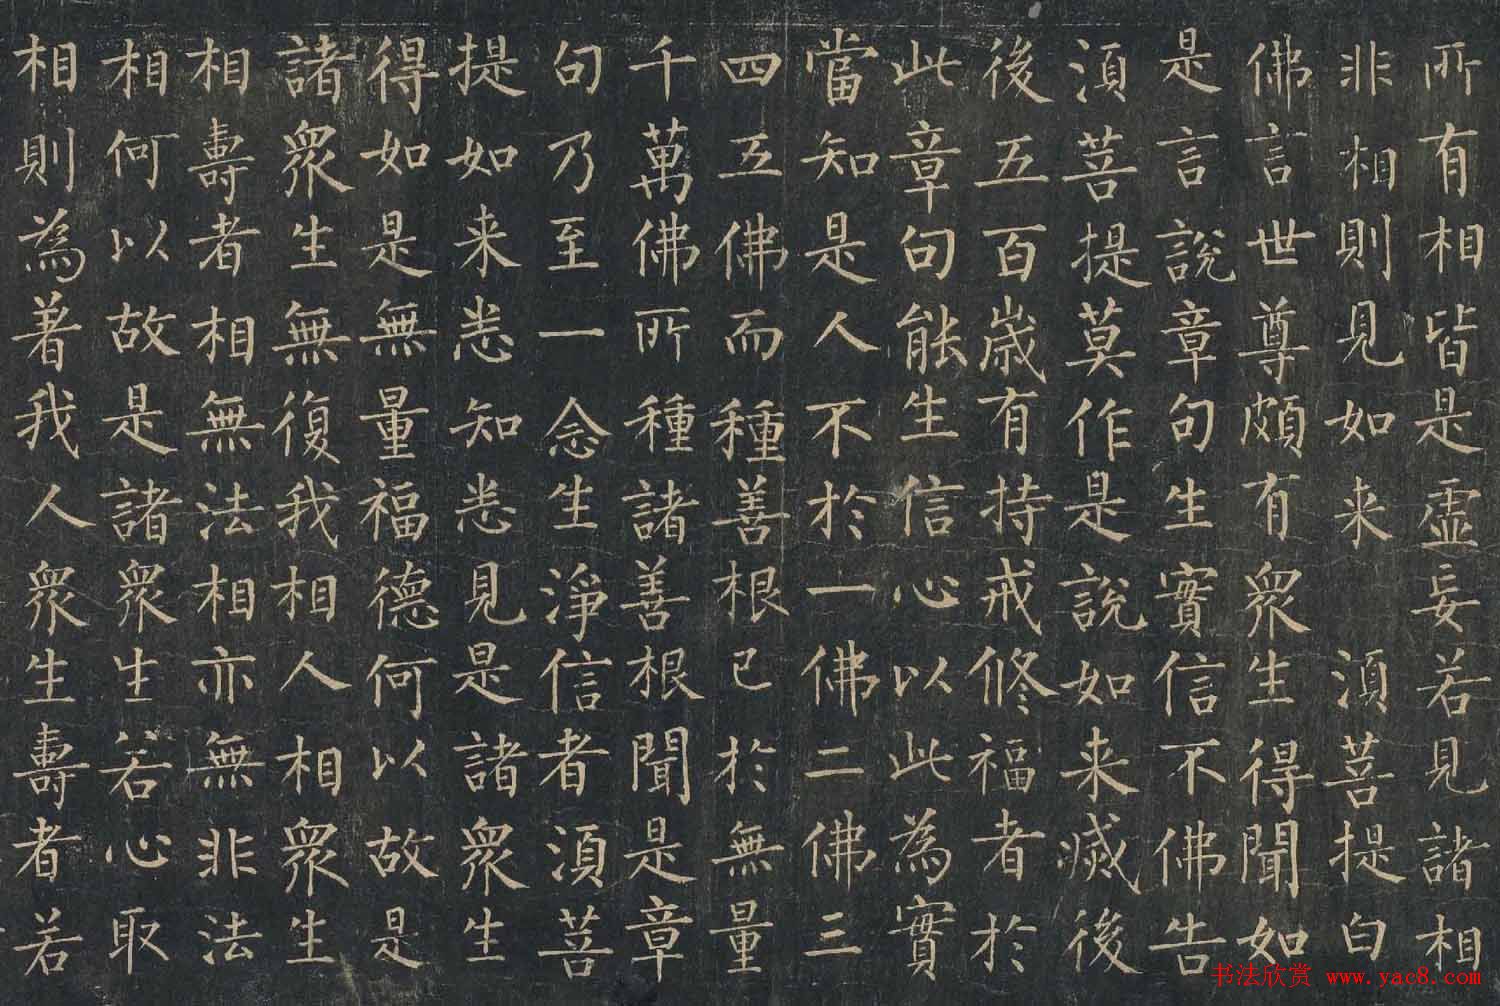 所有相皆是虛妄若見諸相
非相則見如来 須菩提白
佛言世尊頗有眾生得聞如
是言說章句生實信不佛告
須菩提莫作是說如来滅後
後五百歲有持戒修福者於
此章句能生信心以此為實
當知是人不於一佛二佛三
四五佛而種善根已於無量
千萬佛所種諸善根聞是章
句乃至一念生淨信者須菩
提如来悉知悉見是諸眾生
得如是無量福德何以故是
諸眾生無復我相人相眾生
相壽者相無法相亦無非法
相何以故是諸眾生若心取
相則為著我人眾生壽者若
书法欣赏 www.yac8.com